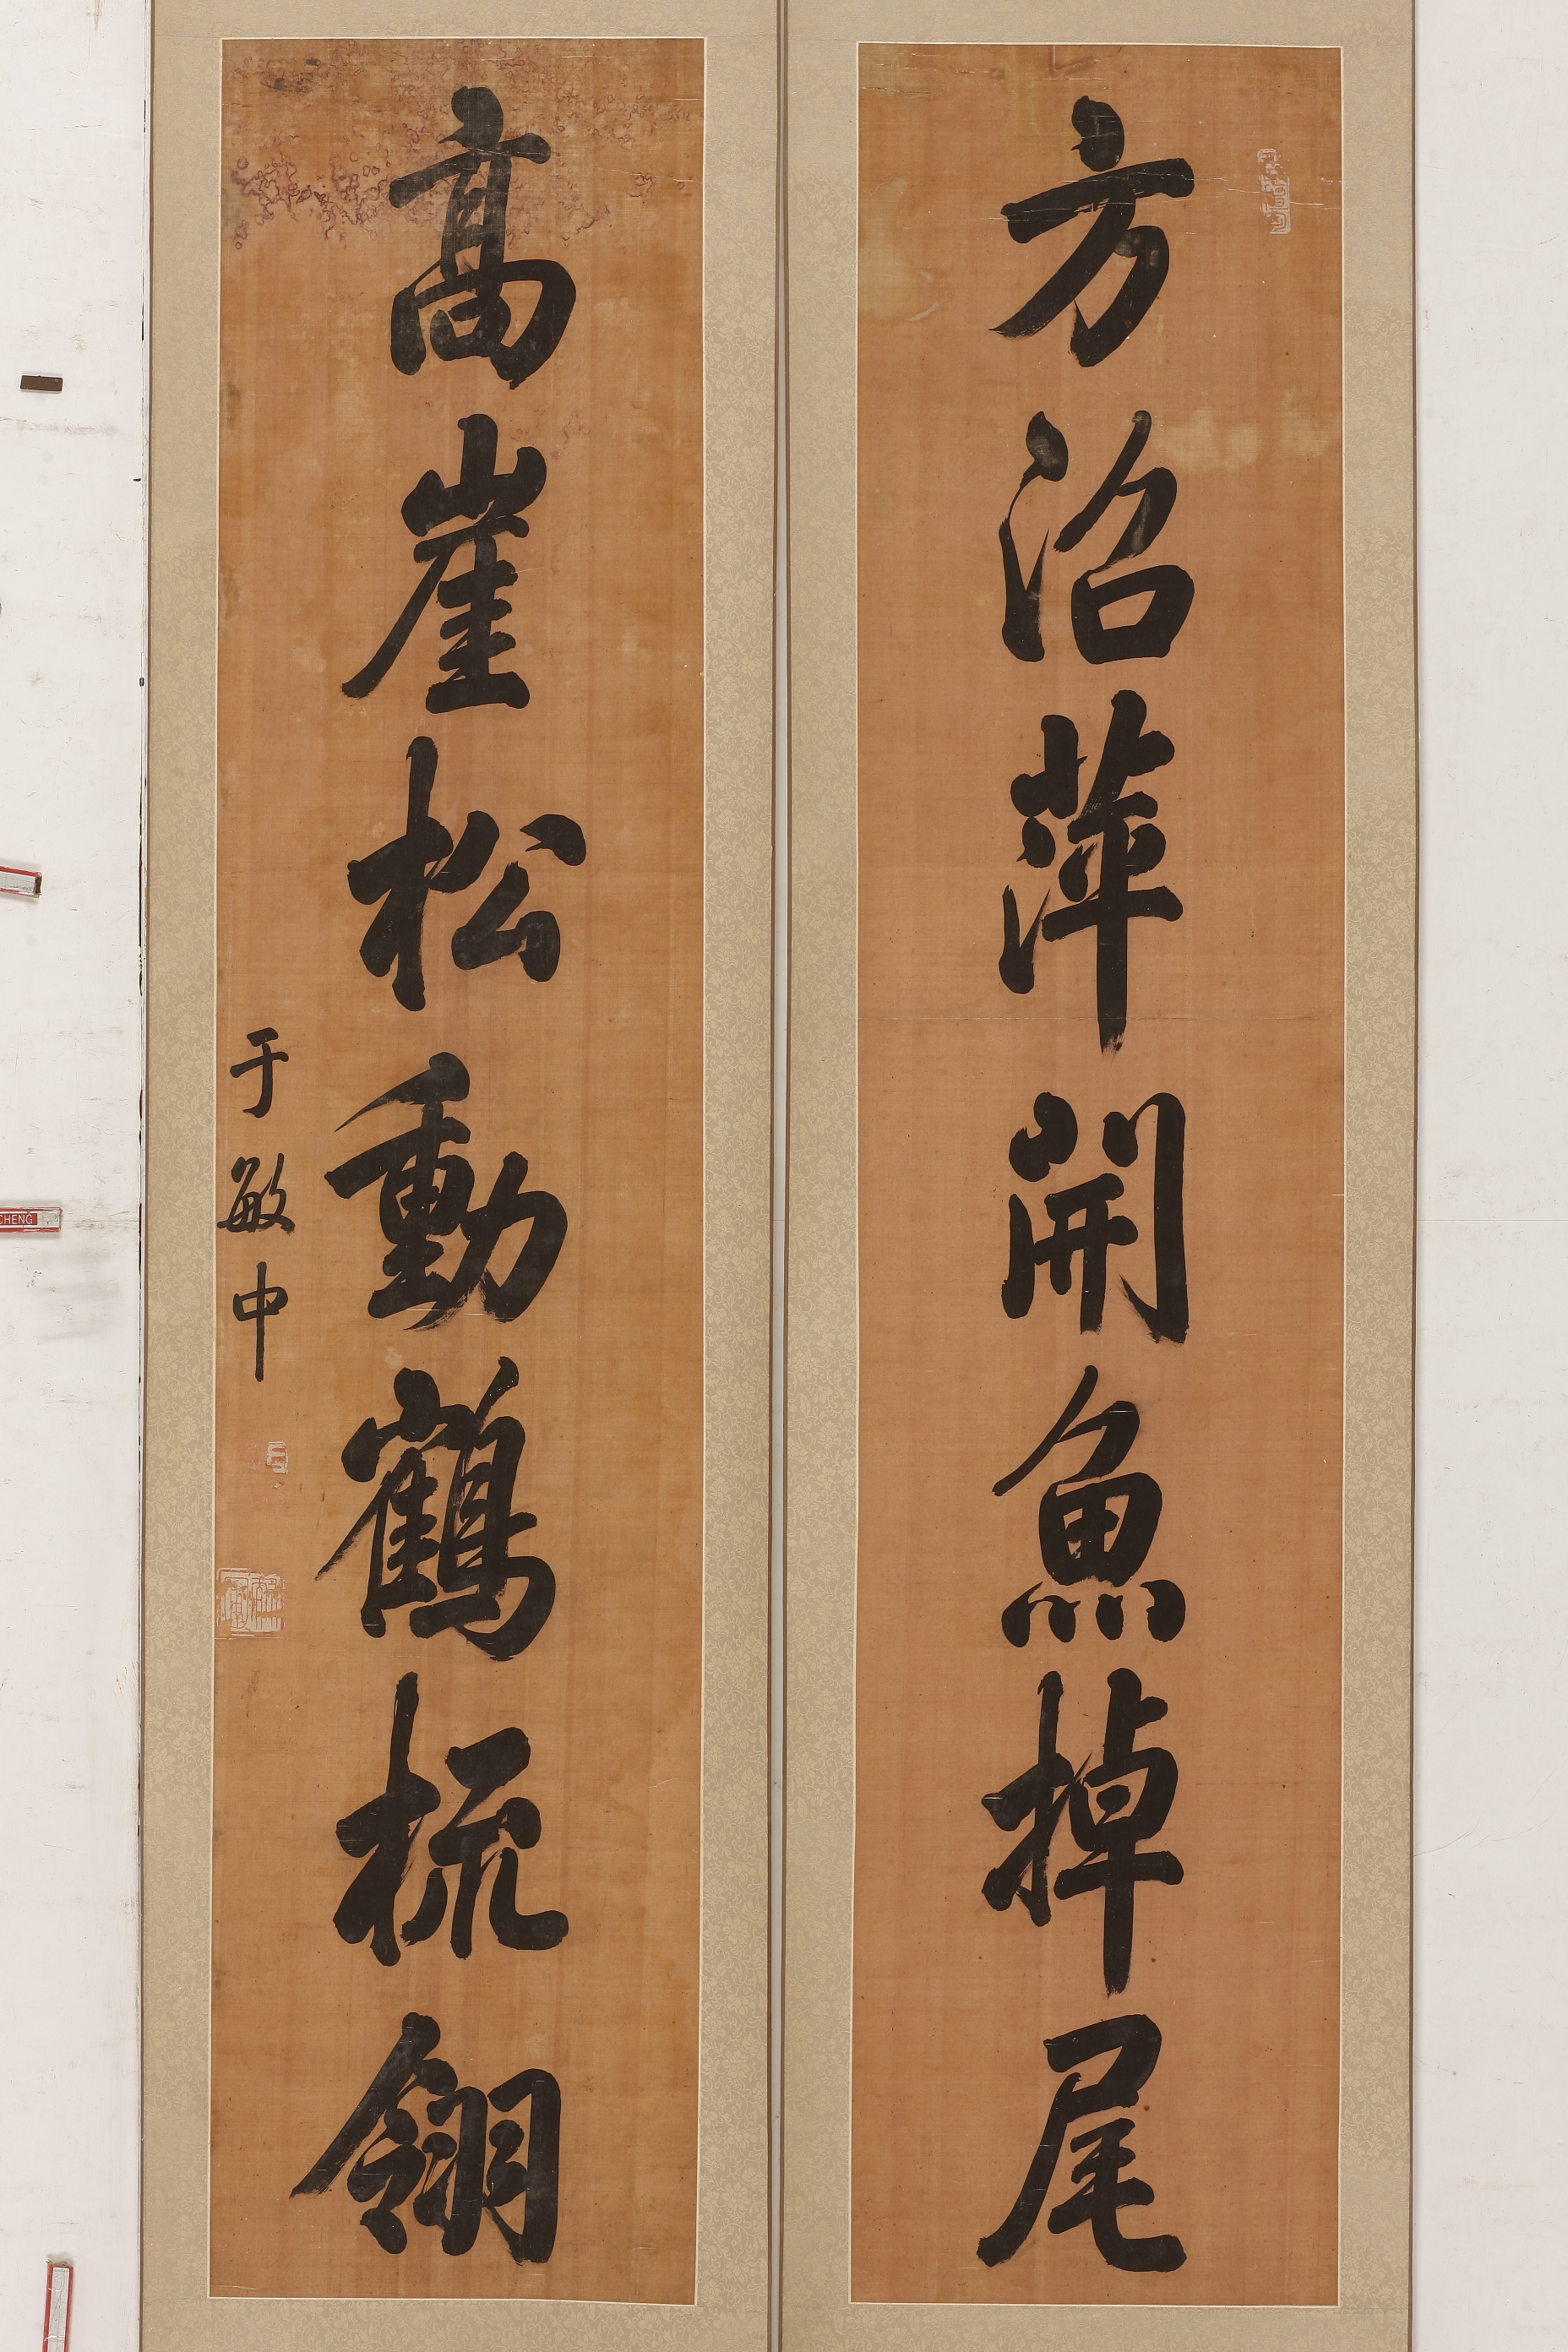 方沼萍開魚掉尾
高崖松動鶴梳翎
于敏中
CHENG